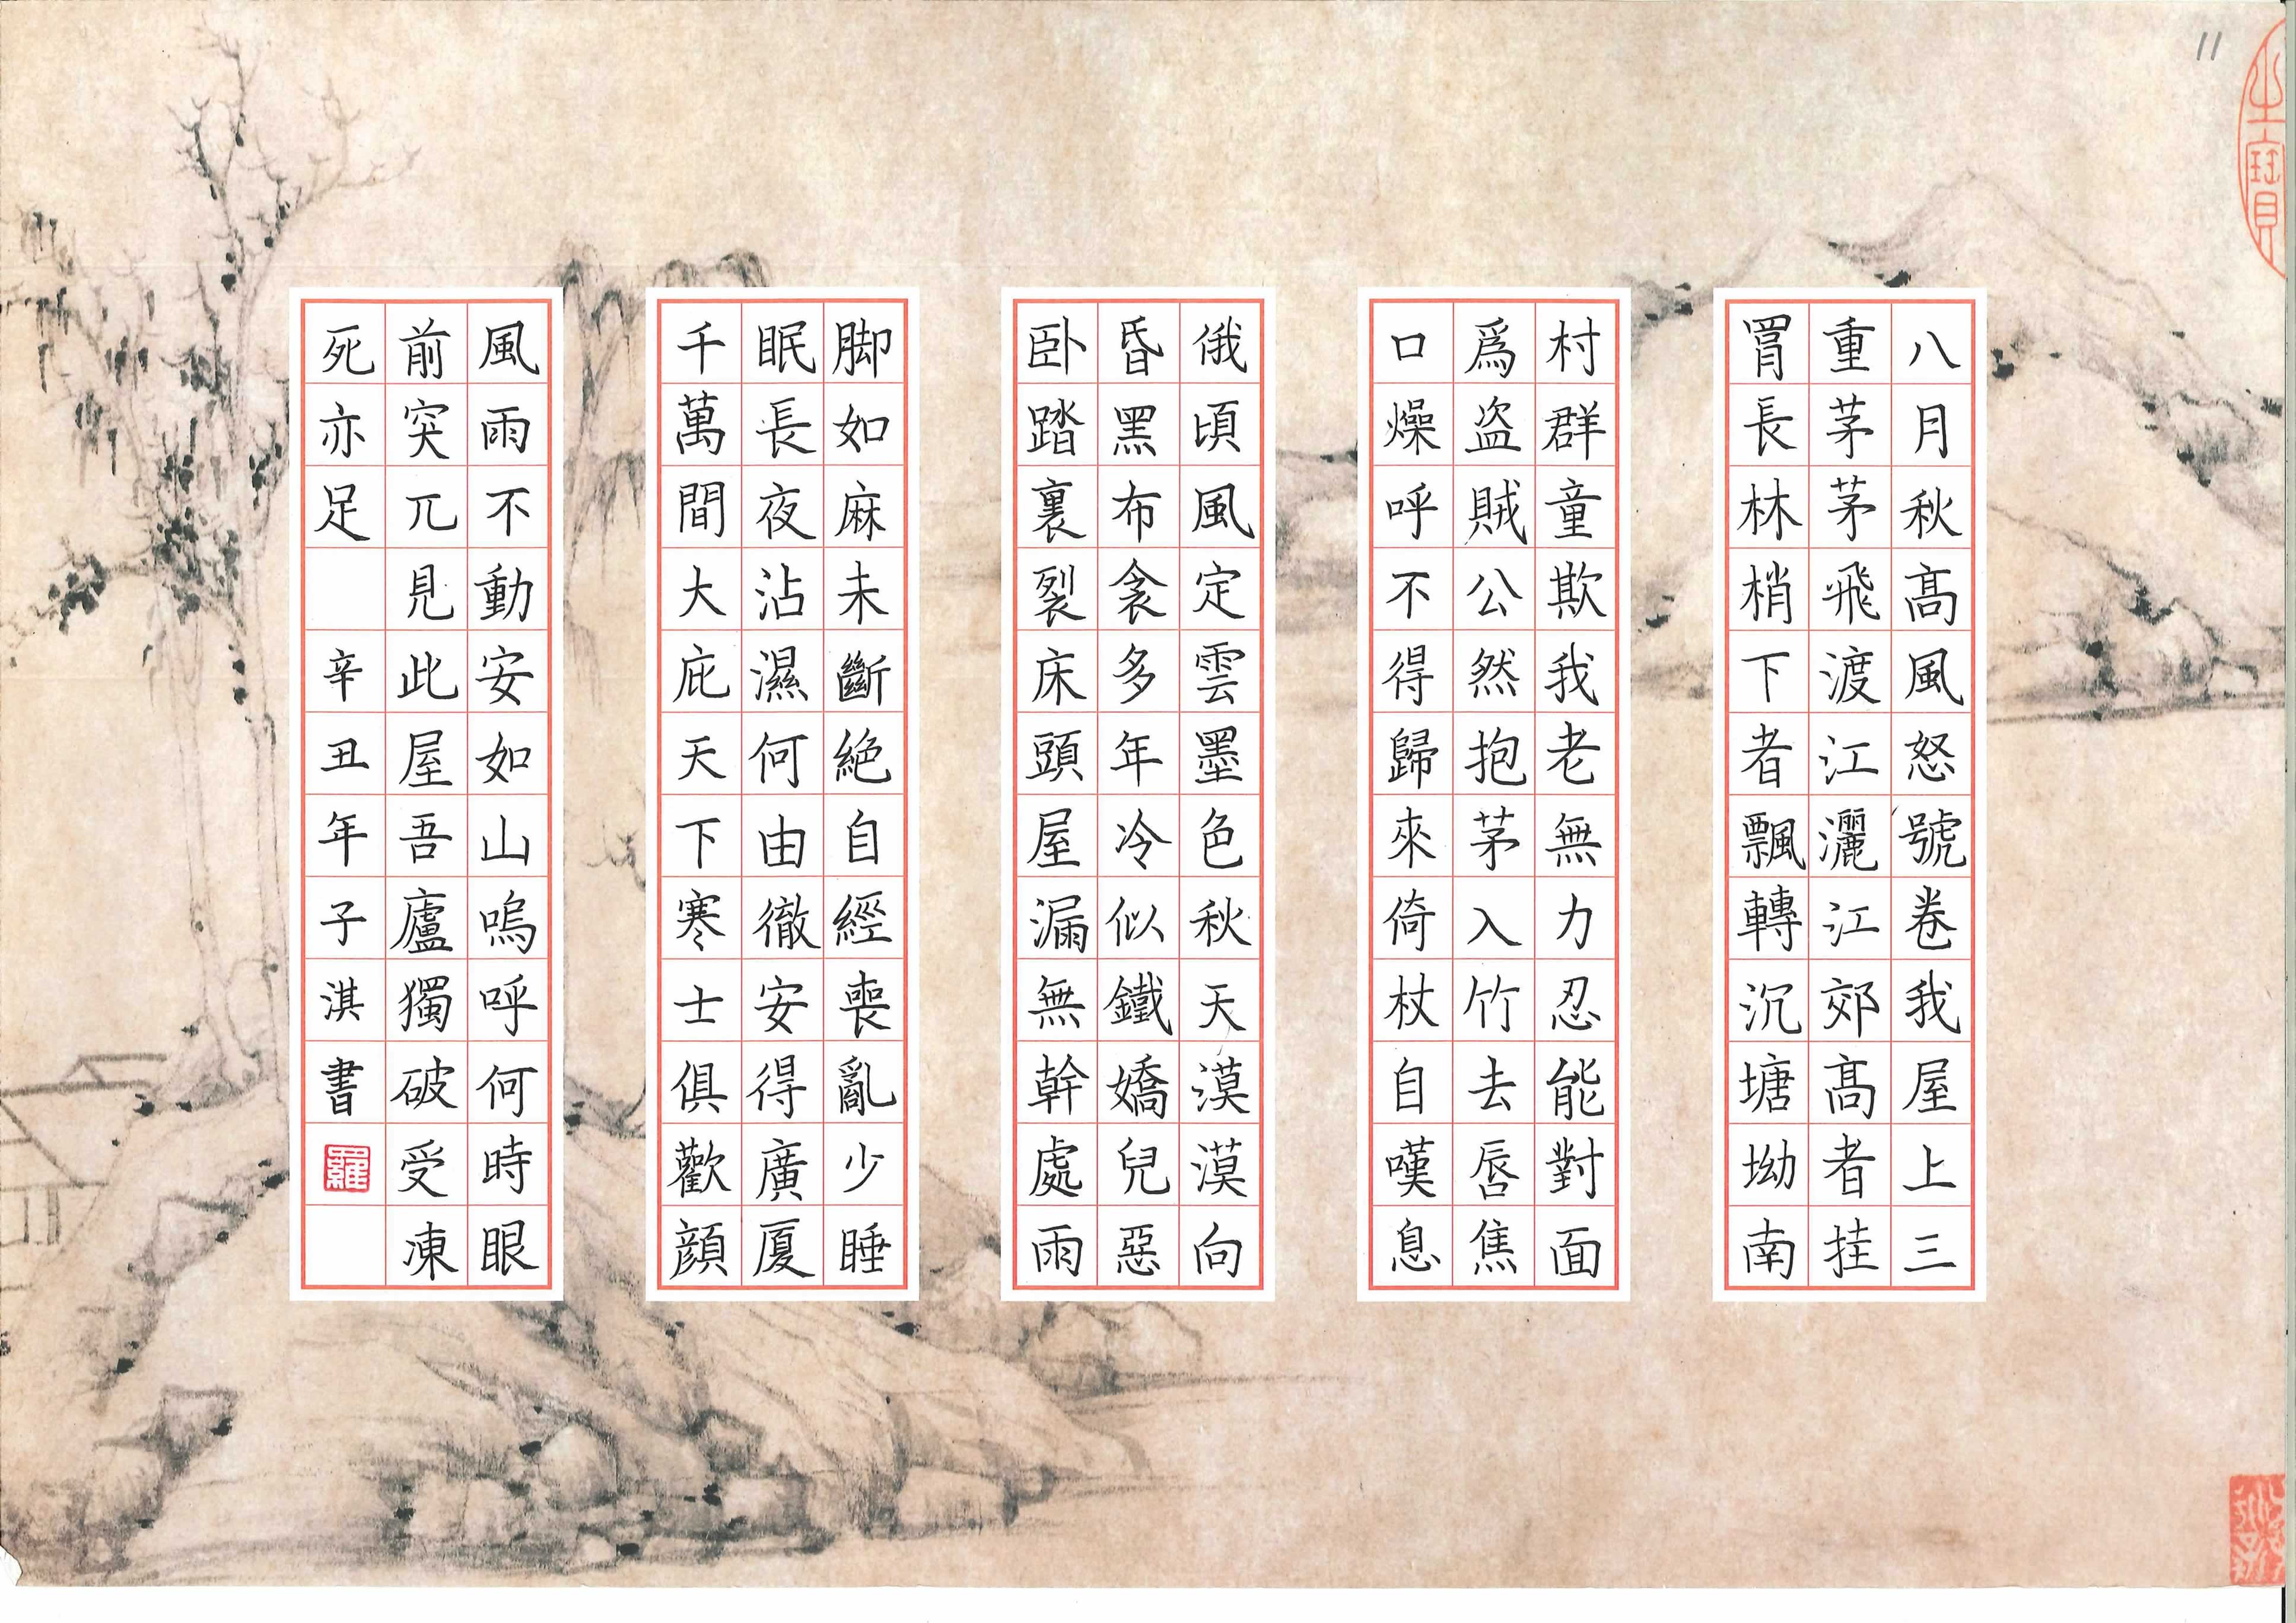 11
八月秋高風怒號卷我屋上三
重茅茅飛渡江灑江郊高者挂
罥長林梢下者飄轉沉塘坳南
村群童欺我老無力忍能對面
爲盗賊公然抱茅入竹去唇焦
口燥呼不得歸來倚杖自嘆息
俄頃風定雲墨色秋天漠漠向
昏黑布衾多年冷似鐵嬌兒惡
卧踏裏裂床頭屋漏無幹處雨
脚如麻未斷絕自經喪亂少睡
眠長夜沾濕何由徹安得廣厦
千萬間大庇天下寒士俱歡顏
風雨不動安如山嗚呼何時眼
前突兀見此屋吾廬獨破受凍
死亦足 辛丑年子淇書
羅